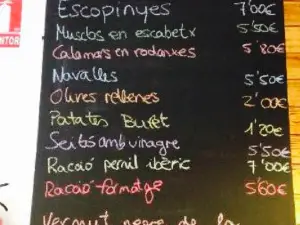 NTOR
Escopinyes 7'00€
Musclos en escabetx 5'50€
Calamars en rodanxes 5'80€
Navalles 5'50€
Olives rellenes 2'00€
Patates Buret 1'20€
Seitós amb vinagre 5'50€
Racció pernil ibèric 7'00€
Racció formatge 5'60€
Vermut negre de la